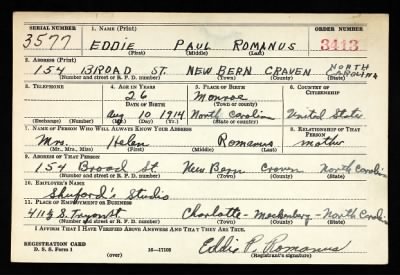 SERIAL NUMBER 1. NAME (Print) ORDER NUMBER
3577 EDDIE PAUL ROMANUS 3413
(First) (Middle) (Last)
2. ADDRESS (Print)
154 BROAD ST. NEW BERN CRAVEN NORTH CAROLINA
(Number and street or R. F. D. number) (Town) (County) (State)
3. TELEPHONE 4. AGE IN YEARS 5. PLACE OF BIRTH 6. COUNTRY OF CITIZENSHIP
26 Monroe
DATE OF BIRTH (Town or county)
Aug 10 1914 North Carolina United States
(Exchange) (Number) (Mo.) (Day) (Yr.) (State or country)
7. NAME OF PERSON WHO WILL ALWAYS KNOW YOUR ADDRESS 8. RELATIONSHIP OF THAT PERSON
Mrs. Helen Romanus mother
(Mr., Mrs., Miss) (First) (Middle) (Last)
9. ADDRESS OF THAT PERSON
154 Broad St New Bern Craven North Carolina
(Number and street or R. F. D. number) (Town) (County) (State)
10. EMPLOYER'S NAME
Shuford's Studio
11. PLACE OF EMPLOYMENT OR BUSINESS
S. Tryon St. Charlotte - Mecklenburg - North Carolina
(Number and street or R. F. D. number) (Town) (County) (State)
I AFFIRM THAT I HAVE VERIFIED ABOVE ANSWERS AND THAT THEY ARE TRUE.
REGISTRATION CARD
D. S. S. Form 1 (over) 16—17105 Eddie P. Romanus
(Registrant's signature)